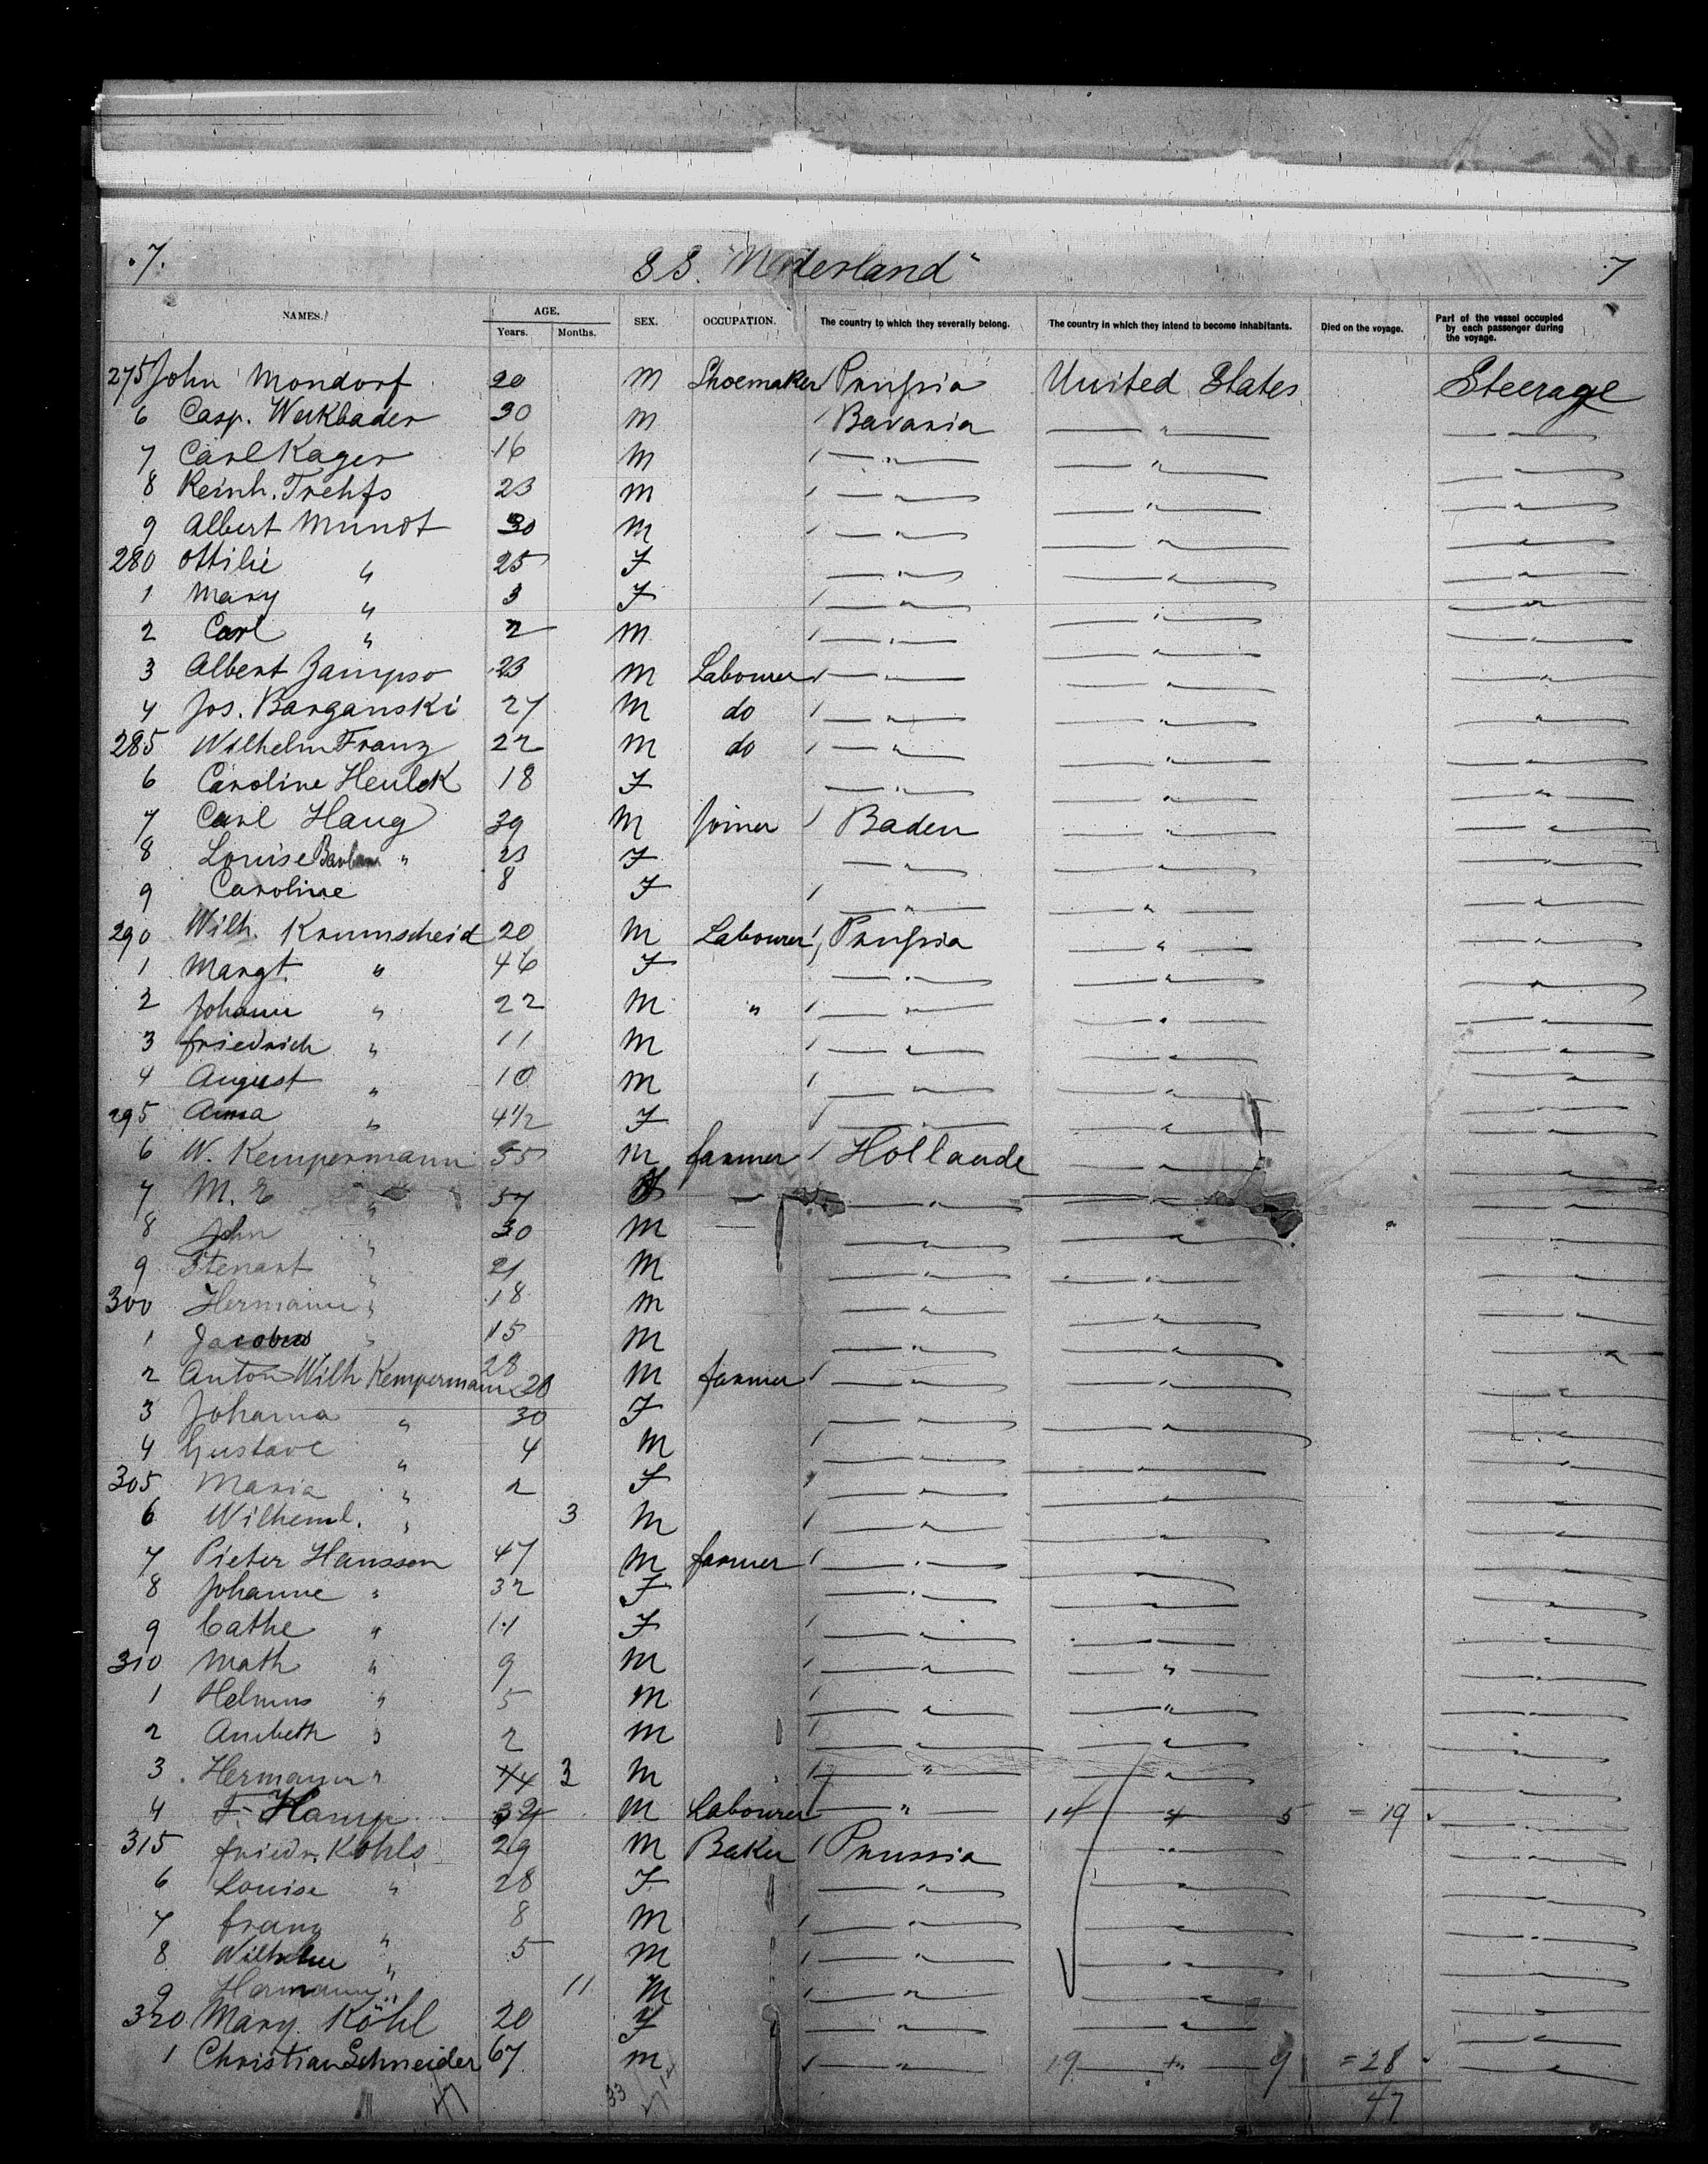 7. S.S. "Nederland" 7
NAMES. AGE. SEX. OCCUPATION. The country to which they severally belong. The country in which they intend to become inhabitants. Died on the voyage. Part of the vessel occupied by each passenger during the voyage.
Years. Months.
275 John Mondorf 20 M Shoemaker / Prussia United States Steerage
6 Casp. Werkbader 30 M / Bavaria — " — — " —
7 Carl Kager 16 M / — " — — " — — " —
8 Reinh. 23 M / — " — — " — — " —
9 Albert Mundt 30 M / — " — — " — — " —
280 Ottilie " 25 F — " — — " — — " —
1 Mary " 3 F / — " — — " — — " —
2 Carl " 2 M / — " — — " — — " —
3 Albert 23 M Labourer / — " — — " — — " —
4 Jos. Barganski 27 M do / — " — — " — — " —
285 Wilhelm Franz 22 M do / — " — — " — — " —
6 Caroline 18 F — " — — " — — " —
7 Carl Haug 39 M Joiner / Baden — " — — " —
8 Louise " 23 F — " — — " — — " —
9 Caroline 8 F / — " — — " — — " —
290 Wilh. Krumscheid 20 M Labourer / Prussia — " — — " —
1 Margt. " 46 F — " — — " — — " —
2 Johann " 22 M " / — " — — " — — " —
3 Friedrich " 11 M / — " — — " — — " —
4 August " 10 M / — " — — " — — " —
295 Anna " 4 1/2 F / — " — — " — — " —
6 W. Kempermann 55 M farmer / Hollande — " — — " —
7 M. E " 57 F — — " — — " — — " —
8 John " 30 M — — " — — " — " — " —
9 Stenart " 21 M — " — — " — — " —
300 Hermann " 18 M — " — — " — — " —
1 Jacobus " 15 M — " — — " — — " —
2 Anton Wilh Kempermann 28 M farmer / — " — — " — — " —
3 Johanna " 30 F — " — — " — — " —
4 Gustave " 4 M / — " — — " — — " —
305 Maria " 2 F / — " — — " — — " —
6 Wilheml. " 3 M / — " — — " — — " —
7 Pieter Hanssen 47 M farmer / — " — — " — — " —
8 Johanne " 32 F — " — — " — — " —
9 Cathe " 11 F / — " — — " — — " —
310 Math " 9 M / — " — — " — — " —
1 Helmus " 5 M / — " — — " — — " —
2 " 2 M / — " — — " — — " —
3 Hermann " 3 M / — " — — " — — " —
4 F. 34 M Labourer / — " — 14 + 5 = 19 — " —
315 Friedr. Kohls 29 M Baker / Prussia — " — — " —
6 Louise " 28 F — " — — " — — " —
7 Franz " 8 M / — " — — " — — " —
8 Wilhelm " 5 M / — " — — " — — " —
9 Hermann " 11 M / — " — — " — — " —
320 Mary Köhl 20 F — " — — " — — " —
1 Christian Schneider 67 M / — " — 19 + 9 = 28 — " —
47 33 47